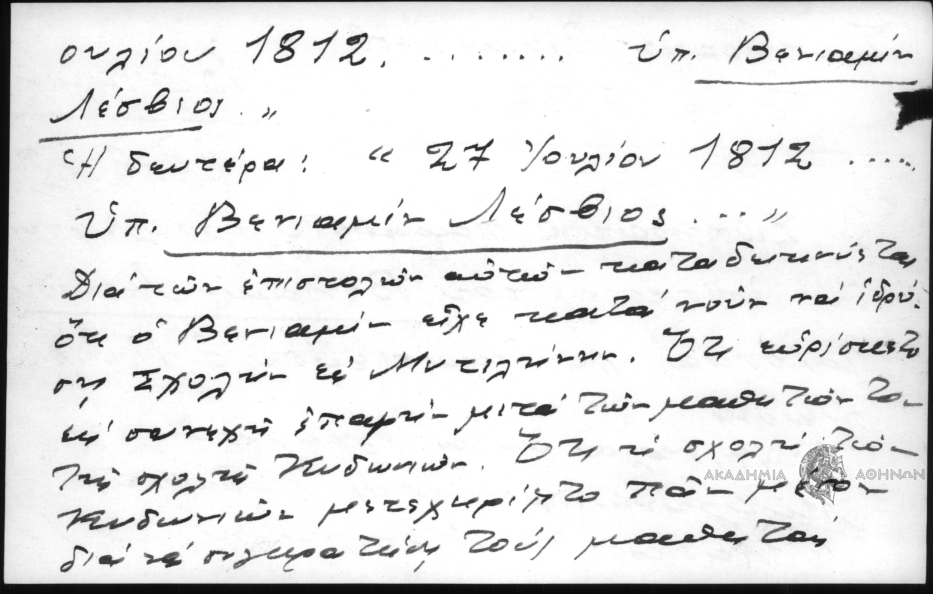 ουλίου 1812. ........ Ὑπ. Βενιαμίν
Λέσβιος."
Ἡ δευτέρα: " 27 Ἰουλίου 1812 ......
Ὑπ. Βενιαμίν Λέσβιος ... "
Διά τῶν ἐπιστολῶν αὐτῶν καταδεικνύεται
ὅτι ὁ Βενιαμίν εἶχε κατά νοῦν νά ἱδρύ-
σῃ Σχολήν ἐν Μυτιλήνῃ. Ὅτι εὑρίσκετο
εἰς συνεχῆ ἐπαφήν μετά τῶν μαθητῶν του
τῆς σχολῆς Κυδωνιῶν. Ὅτι ἡ σχολή τῶν
Κυδωνιῶν μετεχειρίζετο πᾶν μέσον
διά νά συγκρατήσῃ τούς μαθητάς
ΑΚΑΔΗΜΙΑ ΑΘΗΝΩΝ